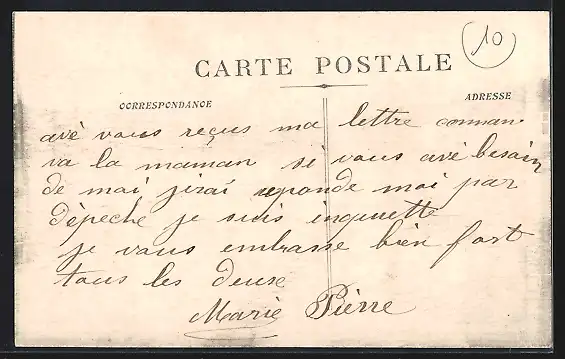 10
CARTE POSTALE
CORRESPONDANCE
ADRESSE
avé vous reçus ma lettre comman
va la maman si vous avé besain
de mai jirai reponde mai par
dèpeche je suis inquiette
je vous embrasse bien fort
tous les deuse
Marie Pièrre